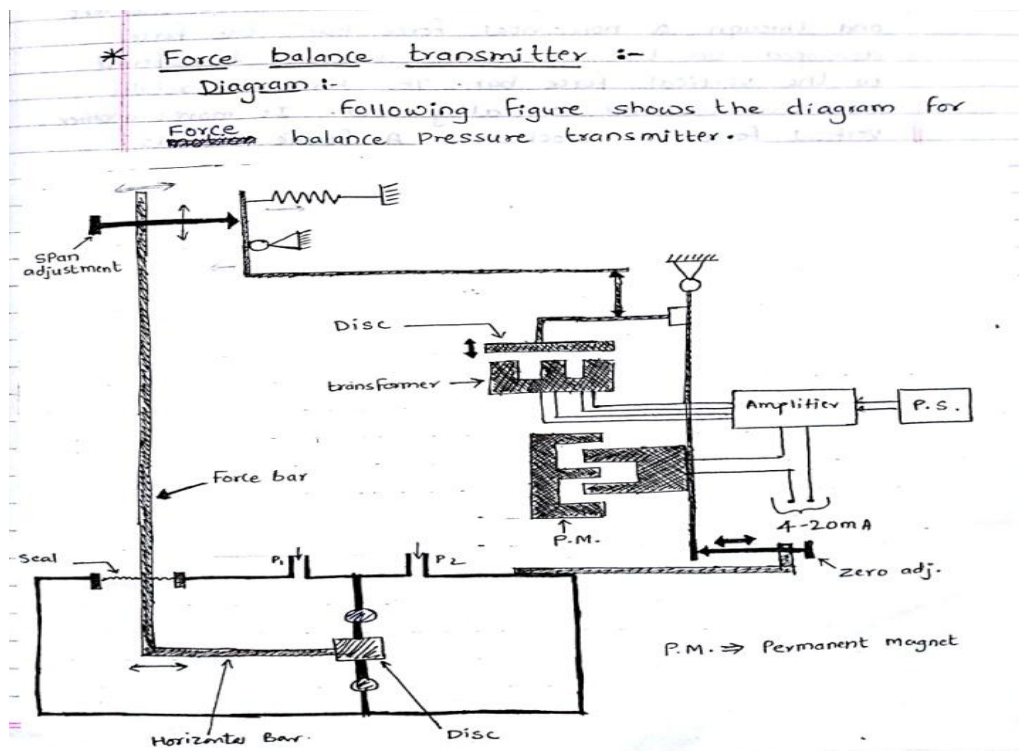 * Force balance transmitter :-
Diagram :-
Following figure shows the diagram for
Force
motion balance pressure transmitter.
Span
adjustment
Disc
transformer
Amplifier
P.S.
Force bar
4-20mA
P.M.
Seal
P1
P2
Zero adj.
P.M. ⇒ Permanent magnet
Horizontal Bar.
Disc